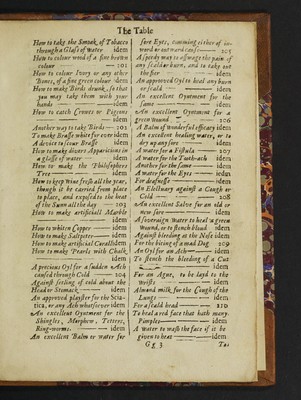 The Table
How to take the Smoak of Tobacco
through a Glass of water idem
How to colour wood of a fine brown
colour 102
How to colour Ivory or any other
Bones, of a fine green colour idem
How to make Birds drunk, so that
you may take them with your
hands idem
How to catch Crowes or Pigeons
idem
Another way to take Birds 103
To make Brasse white for ever idem
A device to scour Brasse idem
How to make divers Apparitions in
a glasse of water idem
How to make the Philosophers
Tree idem
How to keep wine fresh all the year,
though it be carried from place
to place, and exposed to the heat
of the Sunn all the day 103
How to make artificiall Marble
idem
How to whiten Copper idem
How to make Saltpeter idem
How to make artificial Corall idem
How to make Pearls with Chalk
idem
A precious Oyl for a sudden Ach
caused through Cold 104
Against feeling of cold about the
Head or Stomack idem
An approved plaister for the Scia-
tica, or any Ach whatsoever idem
An excellent Oyntment for the
Shingles, Morphew, Tetters,
Ring-worms. idem
An excellent Balm or water for
sore Eyes, comming either of in-
ward or outward cause 205
A speedy way to asswage the pain of
any scald or burn, and to take out
the fire idem
An approved Oyl to heal any burn
or scald idem
An excellent Oyntment for the
same idem
An excellent Oyntment for a
green wound 206
A Balm of wonderful efficacy idem
An excellent healing water, or to
dry up any sore idem
A water for a Fistula 207
A water for the Tooth-ach idem
Another for the same idem
A water for the Eyes idem
For deafness idem
An Electuary against a Cough or
Cold 208
An excellent Salve for an old or
new sore idem
A soveraign water to heal a green
wound, or to stench blood idem
Against bleeding at the Nose idem
For the biting of a mad Dog 209
An Oyl for an Ach idem
To stench the bleeding of a Cut
idem
For an Ague, to be layd to the
wrists idem
Almond milk for the Cough of the
Lungs idem
For a scald head 210
To heal a red face that hath many
Pimples idem
A water to wash the face if it be
given to heat idem
Gg 3 To